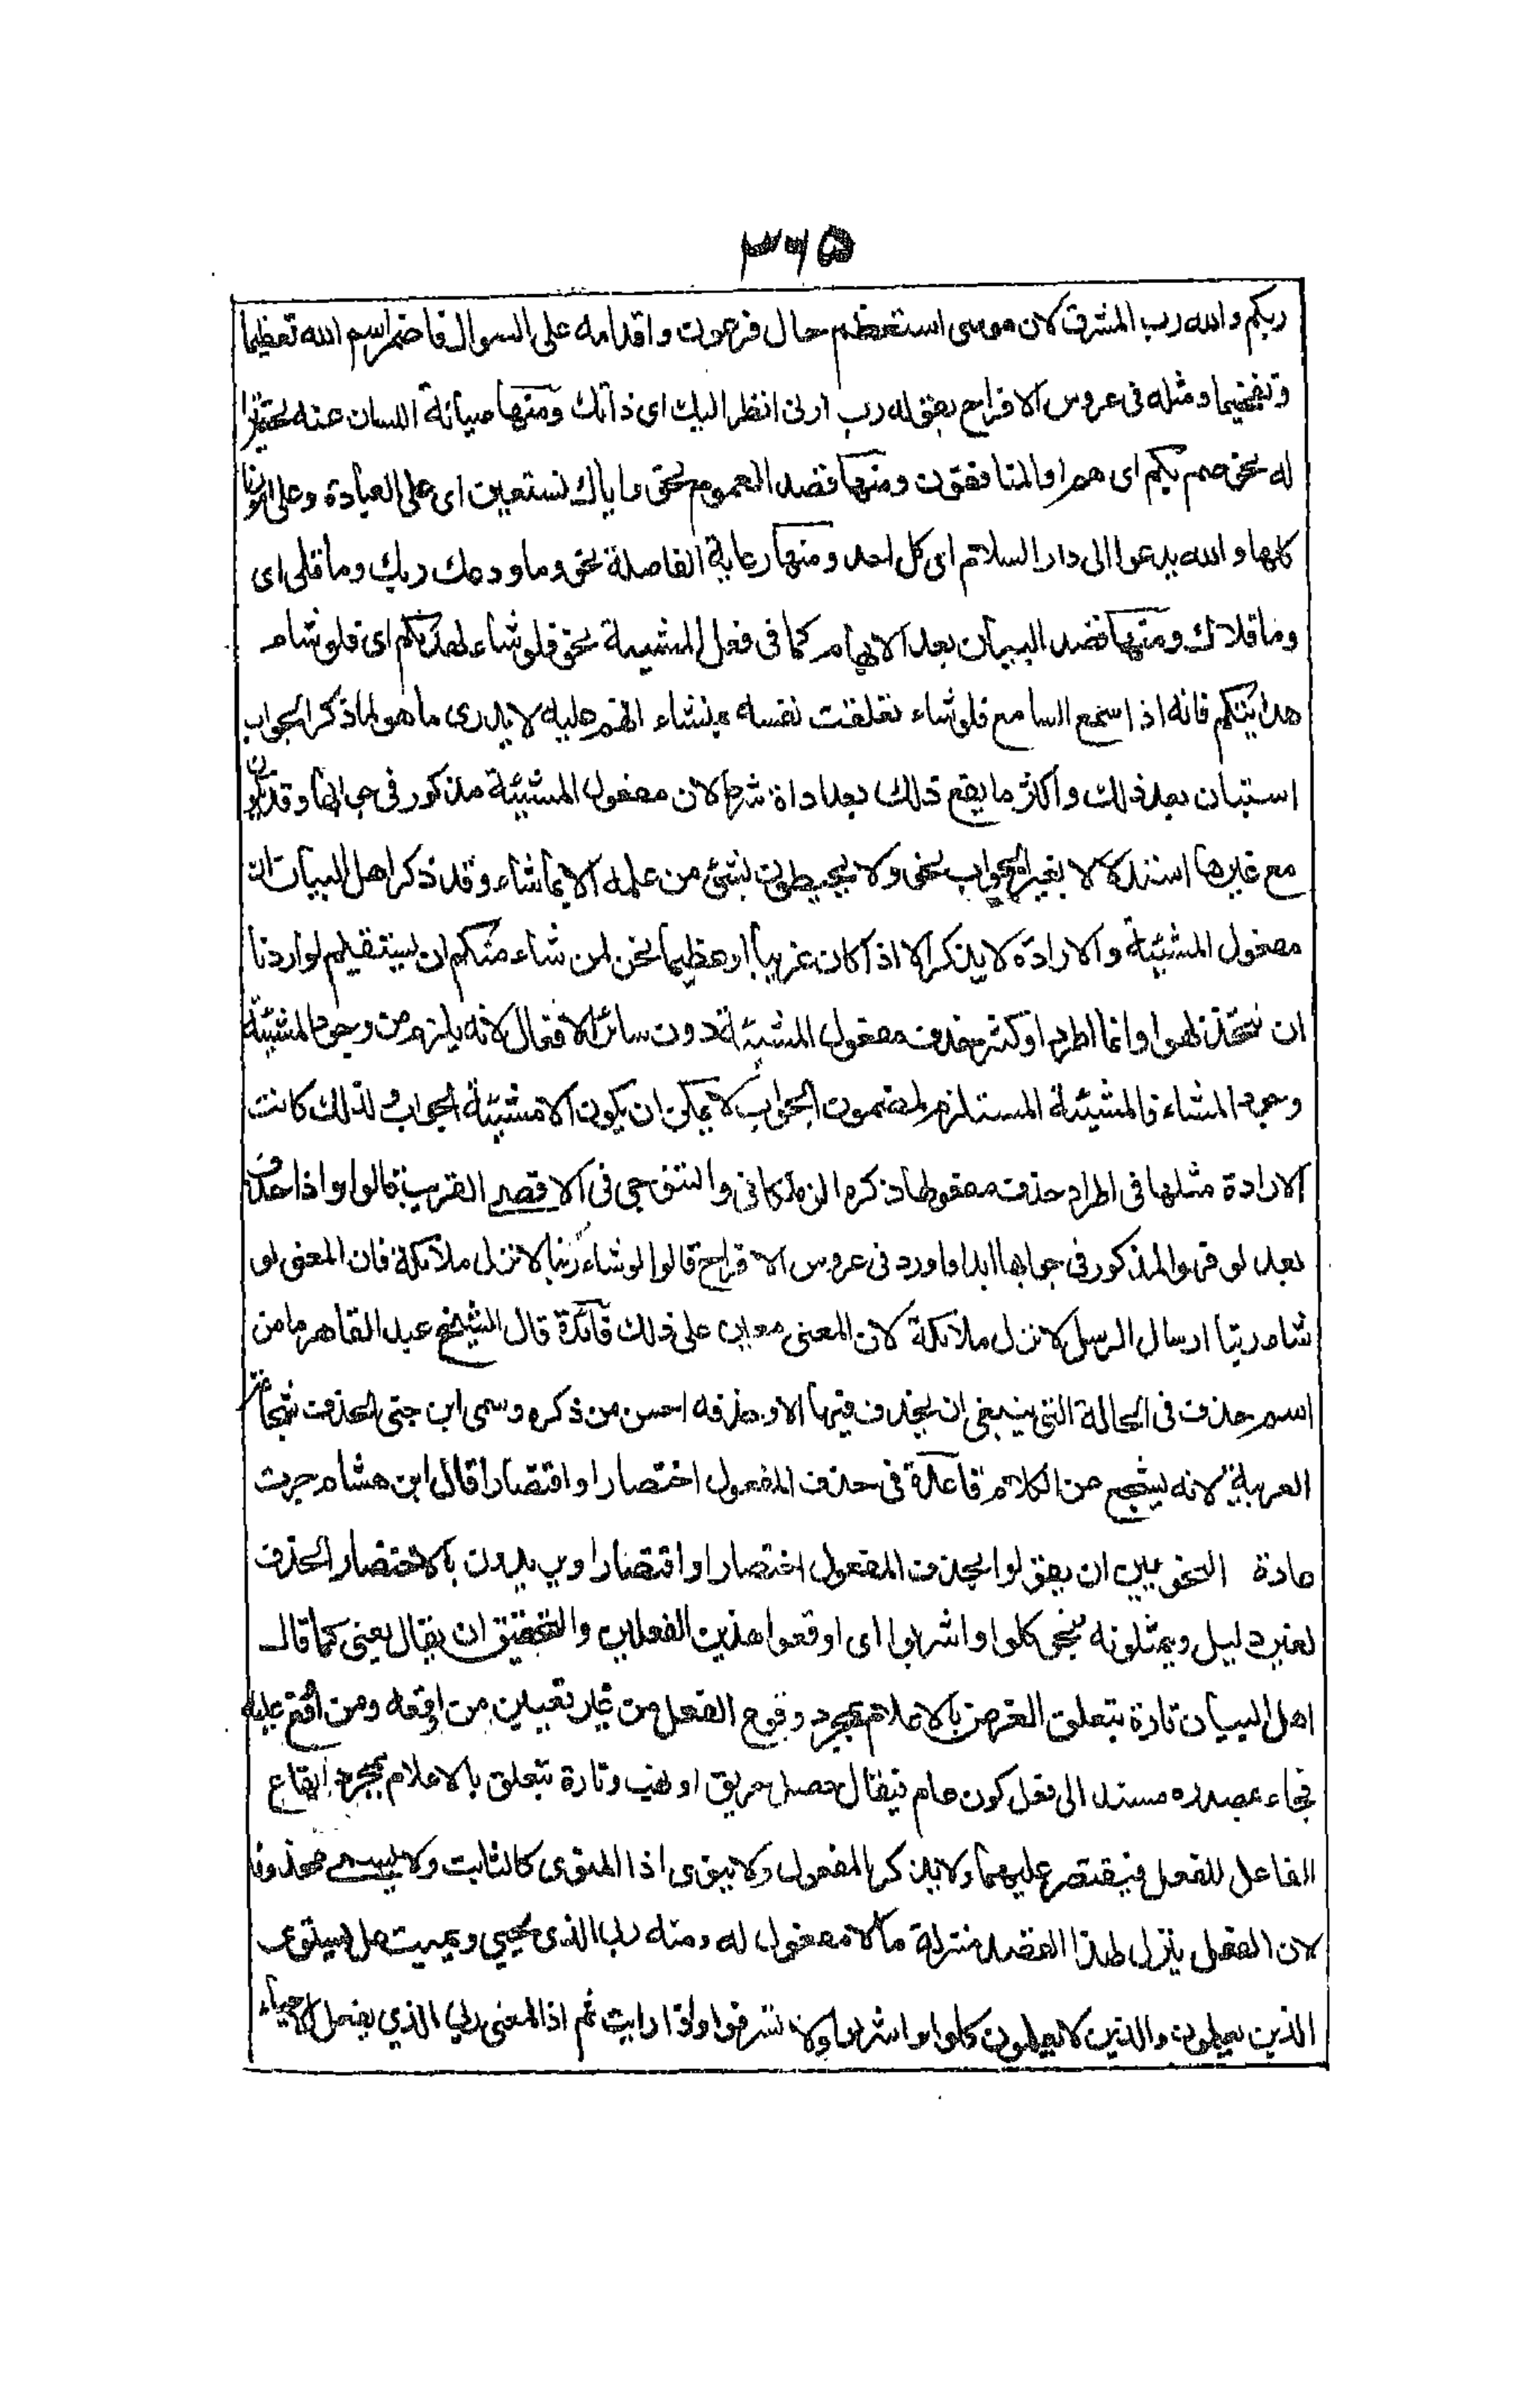 ٣٦٥
ربكم والله رب المشرق لان موسى استعظم حال فرعون واقدامه على السوال فاضمر اسم الله تعظيما
وتفخيما ومثله فى عروس الافراح بقوله رب ارنى انظر اليك اى ذاتك ومنها صيانة اللسان عنه تحقيرا
له نحو صم بكم اى هم او المنافقون ومنها قصد العموم نحو واياك نستعين اى على العبادة وعلى امورنا
كلها والله يدعوا الى دار السلام اى كل احد ومنها رعاية الفاصلة نحو وما ودعك ربك وما قلى اى
وما قلاك ومنها قصد البيان بعد الابهام كما فى فعل المشيية نحو فلو شاء لهدىكم اى فلو شاء
هدايتكم فانه اذا سمع السامع فلو شاء تعلقت نفسه بمنشاء انبهم عليه لا يدرى ما هو لما ذكر الجواب
استبان بعد ذلك واكثر ما يقع ذلك بعد اداة شرط لان مفعول المشيئة مذكور فى جوابها وقد يكون
مع غيرها استدلالا بغير الجواب نحو ولا يحيطون بشئ من علمه الا بما شاء وقد ذكر اهل البيان ان
مفعول المشيئة والارادة لا يذكر الا اذا كان غريبا او عظيما نحو لمن شاء منكم ان يستقيم لو اردنا
ان نتخذ لهوا وانما اطرد او كثر حذف مفعول المشيئة دون سائر الافعال لانه يلزم من وجود المشيئة
وجود المشاء فالمشيئة المستلزم لمضمون الجواب لا يمكن ان يكون الا مشيئة الجواب ولذلك كانت
الارادة مثلها فى اطراد حذف مفعولها ذكره الزملكانى والتنوجى فى الاقصى القريب قالوا واذا حذف
بعد لو فهو المذكور فى جوابها ابدا واورد فى عروس الافراح قالوا لو شاء ربنا لانزل ملائكة فان المعنى لو
شاء ربنا ارسال الرسل لانزل ملائكة لان المعنى معاين على ذلك فائدة قال الشيخ عبد القاهر ما من
اسم حذف فى الحالة التى ينبغى ان يحذف فيها الا وحذفه احسن من ذكره وسمى ابن جنى الحذف شجاعة
العربية لانه يشجع من الكلام قاعدة فى حذف المفعول اختصارا واقتصارا قال ابن هشام جرت
عادة النحويين ان يقولوا بحذف المفعول اختصارا واقتصارا ويريدون بالاختصار الحذف
لغير دليل ويمثلونه بنحو كلوا واشربوا اى اوقعوا هذين الفعلين والتحقيق ان يقال يعنى كما قال
اهل البيان تارة يتعلق الغرض بالاعلام بمجرد وقوع الفعل من غير تعيين من اوقعه ومن اوقع عليه
فجاء بمصدره مسند الى فعل كون عام فيقال حصل حريق او نهب وتارة يتعلق بالاعلام بمجرد ايقاع
الفاعل للفعل فيقتصر عليهما ولا يذكر المفعول ولا ينوى اذا المنوى كالثابت ولا يسمى محذوفا
لان الفعل ينزل لهذا القصد منزلة ما لا مفعول له ومنه ربى الذى يحيى ويميت هل يستوى
الذين يعلمون والذين لا يعلمون كلوا واشربوا ولا تسرفوا واذا رايت ثم اذ المعنى ربى الذى يفعل الاحياء